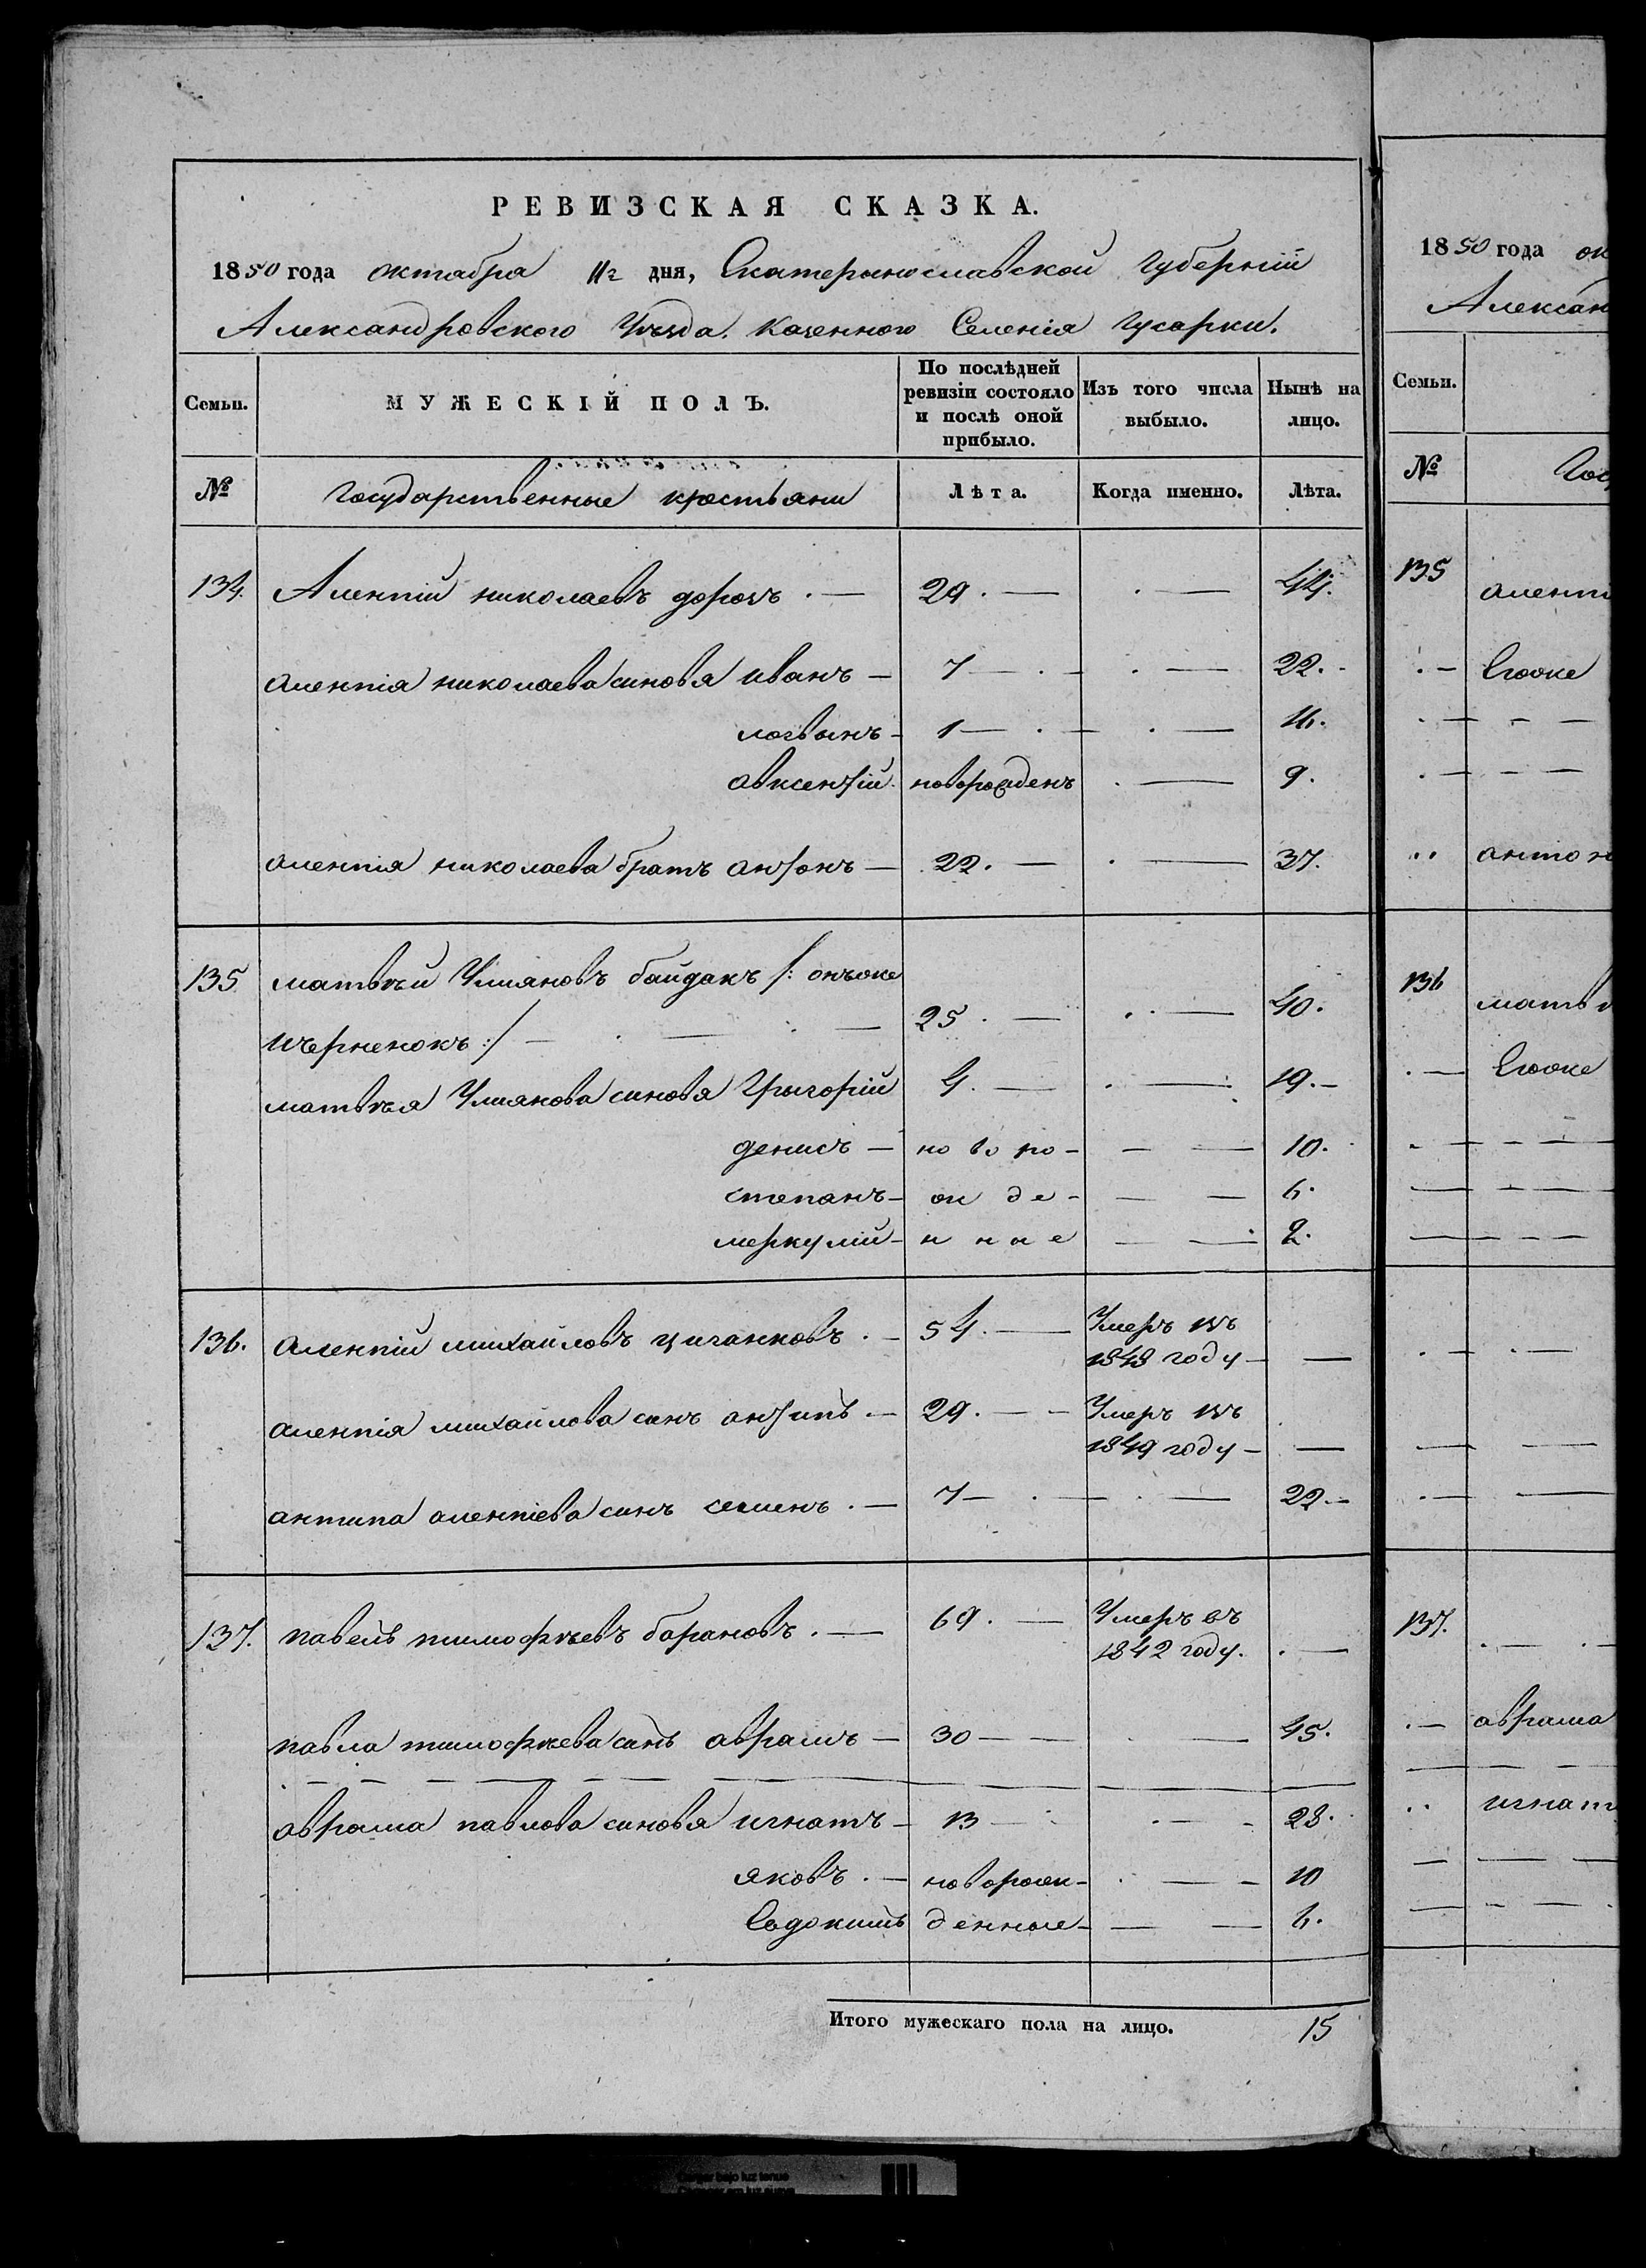 РЕВИЗСКАЯ СКАЗКА.
1850 года октабра 11г дня, Екатерынославской Губерній
Александровского Уѣзда. Казенного Селенія Гусарки.
Семьи. МУЖЕСКІЙ ПОЛЪ. По послѣдней ревизіи состояло и послѣ оной прибыло. Изъ того числа выбыло. Нынѣ на лицо.
№ Государственные крестьяни Лѣта. Когда именно. Лѣта.
134. Алентій николаевъ 29. — . — 44.
алентія николаева синовя иванъ — 7 — . — . — 22.
логвынъ — 1 — . — . — 16.
авксентій. новорожденъ . — 9.
алентія николаева братъ антонъ — 22. — . — 37.
135 матвѣй Улияновъ байдакъ /: онъже
чърненокъ :/ — . — . — 25 . — . . — 40.
матвѣя Улиянова синовя Грыгорій 4. — . — 19. —
денисъ — ново ро- — — 10.
степанъ — ж де- — — 6.
меркулій — н ные — — 2.
136. алентій михайловъ циганковъ . — 54. — Умеръ въ
1848 году — —
алентія михайлова синъ антипъ. — 29. — — Умеръ въ
1849 году — —
антипа алентіева синъ семенъ . — 7 — . — . — 22. —
137. павелъ тимофѣевъ барановъ . — 69. — Умеръ въ
1842 году. . —
павла тимофѣева синъ аврамъ — 30 — — . — 45.
аврама павлова синовя игнатъ — 13 — . — — 28.
яковъ . — новорож- . — — 10
Евдокимъ денные — — — 6.
Итого мужескаго пола на лицо. 15
1850 года ок
Алексан
Семьи.
№ Гос
135 аленти
Егоже
антон
136 матв
Егоже
137.
аврама
игнат